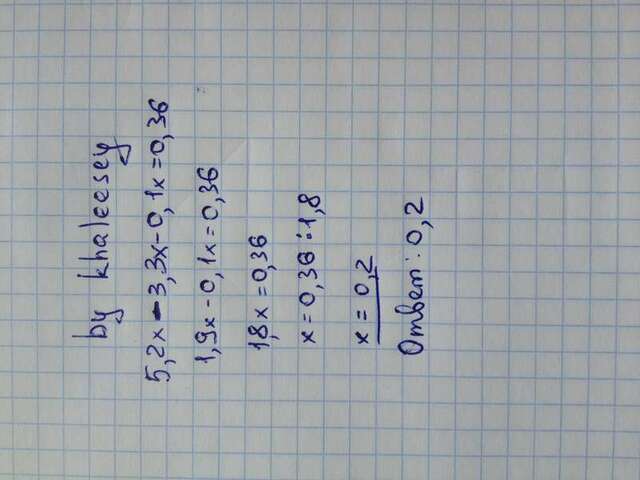 by khaleesey
5,2x - 3,3x - 0,1x = 0,36
1,9x - 0,1x = 0,36
1,8x = 0,36
x = 0,36 : 1,8
x = 0,2
Ответ: 0,2